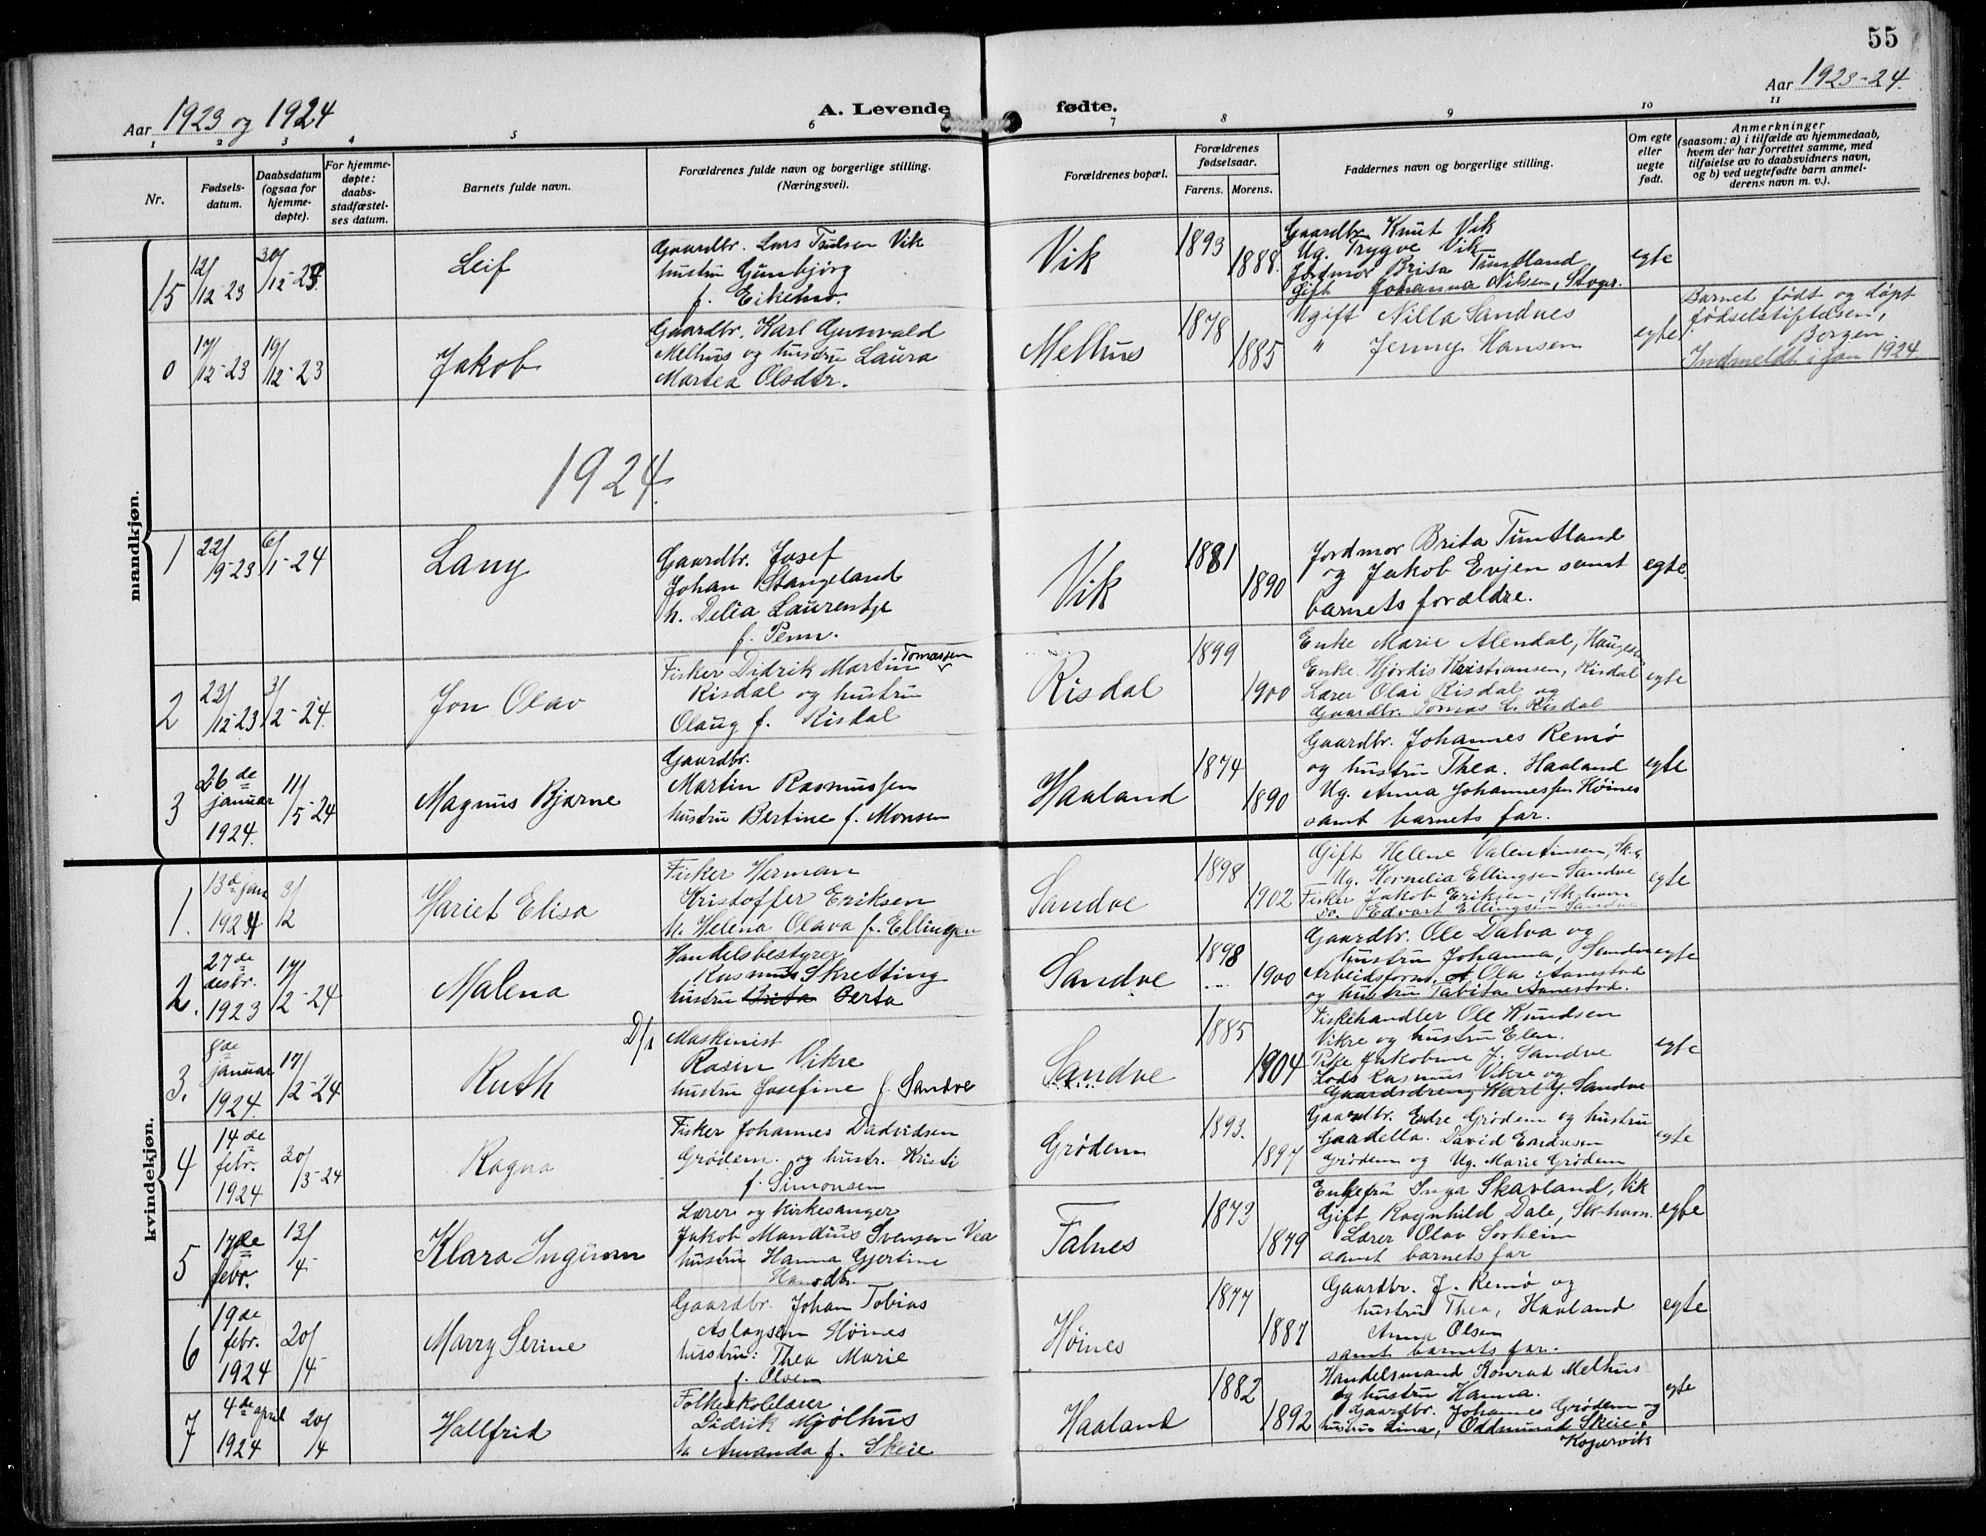 55
Aar 1923 og 1924
A. Levende fødte.
Aar 1923-24.
1 2 3 4 5 6 7 8 9 10 11
Nr.
Fødsels-
datum.
Daabsdatum
(ogsaa for
hjemme-
døpte).
For hjemme-
døpte:
daabs-
stadfæstel-
ses datum.
Barnets fulde navn.
Forældrenes fulde navn og borgerlige stilling.
(Næringsvei).
Forældrenes bopæl.
Forældrenes
fødselsaar.
Farens. Morens.
Faddernes navn og borgerlige stilling.
Om egte
eller
uegte
født.
Anmerkninger
(saasom: a) i tilfælde av hjemmedaab,
hvem der har forrettet samme, med
tilføielse av to daabsvidners navn,
og b) ved uegtefødte barn anmel-
derens navn m. v.).
mandkjøn.
15
12/12-23
30/12-23
Leif
Gaardbr. Lars Tuılsen Vik
hustru Gunbjørg
f. Eikemo.
Vik
1893
1888.
Gaardbr Knut Vik
Ug. Trygve Vik
Jordmor Brita Tuntland
Gift Johanna Nilsen, Stogr.
egte
0
17/12-23
19/12-23
Jakob
Gaardbr. Karl Gunvald
Melhus og hustru Laura
Martea Olsdtr.
Melhus
1878
1885
Ugift Nilla Sandnes
" Jenny Hansen
egte
Barnet født og døpt
fødselstiftelsen,
Bergen.
Indmeldt i jan 1924
1924.
1
22/9-23
6/1-24
Lany
Gaardbr. Josef
Johan Stangeland
h. Delia Laurentze
f. Penn.
Vik
1881
1890
Jordmor Brita Tuntland
og Jakob Evjen samt
barnets forældre.
egte.
2
23/12-23
3/2-24.
Jon Olav
Fisker Didrik Martin Tomassen
Risdal og hustru
Olaug f. Risdal
Risdal
1899
1900
Enke Marie Alendal, Hauges
Enke Hjørdis Kristiansen, Risdal
Lærer Olai Risdal og
Gaardbr. Tomas L. Risdal
egte
3
26 de
januar
1924.
11/5-24
Magnus Bjarne
Gaardbr.
Martin Rasmussen
hustru Bertine f. Monsen
Haaland
1874
1890
Gaardbr. Johannes Remø
og hustru Thea. Haaland
Ug. Anna Johannessen Høines
samt barnets far.
egte
kvindekjøn.
1.
13 de jan
1924
3/2
Hariet Elisa
Fisker Herman
Kristoffer Eriksen
h. Helena Olava f. Ellingsen
Sandve
1898
1902
Gift Helene Valentinsen, Sk.
Ug. Kornelia Ellingsen Sandve
Fisker Jakob Eriksen, Sk.havn
do. Edvart Ellingsen Sandve
egte
2.
27 de
desbr.
1923
17/2-24
Malena
Handelsbestyrer
Rasmus Skretting
hustru Brita Berta
Sandve
1898
1900
Gaardbr. Ole Dalva og
hustru Johanna, Sandve
Arbeidsform. Ola Aanestad
og hustru Tabita Aanestad.
egte
3.
8 de
januar
1924.
17/2-24
Ruth
D/s
Maskinist
Rasin Vikre
hustru Josefine f. Sandve
Sandve
1885
1904
Fiskehandler Ole Knudsen
Vikre og hustru Elen
Pike Jakobine J. Sandve
Lods Rasmus Vikre og
Gaardsdreng Karl G. Sandve
egte
4
14 de
febr.
1924
30/3-24
Ragna
Fisker Johannes Dadvidsen
Grødem. og hustr. Kristi
f. Simonsen
Grødem
1893.
1897
Gaardbr. Edre Grødem og hustru
Gaardella. David Endresen
Grødem og Ug. Marie Grødem
egte
5
17 de
febr.
13/4
Klara Ingunn
Lærer og kirkesanger
Jakob Mandius Svensen Vea
hustru Hanna Gjertine
Hansdtr.
Falnes
1873
1879
Enkefru Inga Skavland, Vik
Gift Ragnhild Dale, Sk-havn.
Lærer Olav Sørheim
samt barnets far
egte
6
19 de
febr.
1924
20/4
Marry Serine
Gaardbr. Johan Tobias
Aslagsen Høines
hustru: Thea Marie
f. Olsen
Høines
1877
1887
Gaardbr. J. Remø og
hustru Thea, Haaland
Anna Olsen
samt barnets far.
egte
7
4 de april
1924
20/4
Hallfrid
Folkeskolelærer
Didrik Mjølhus
h. Amanda f. Skeie
Haaland
1882
1892
Handelsmand Konrad Melhus
og hustru Hanna.
Gaardbr. Johannes Grødem og
hustru Lina, Oddmund Skeie.
Kopervik
egte